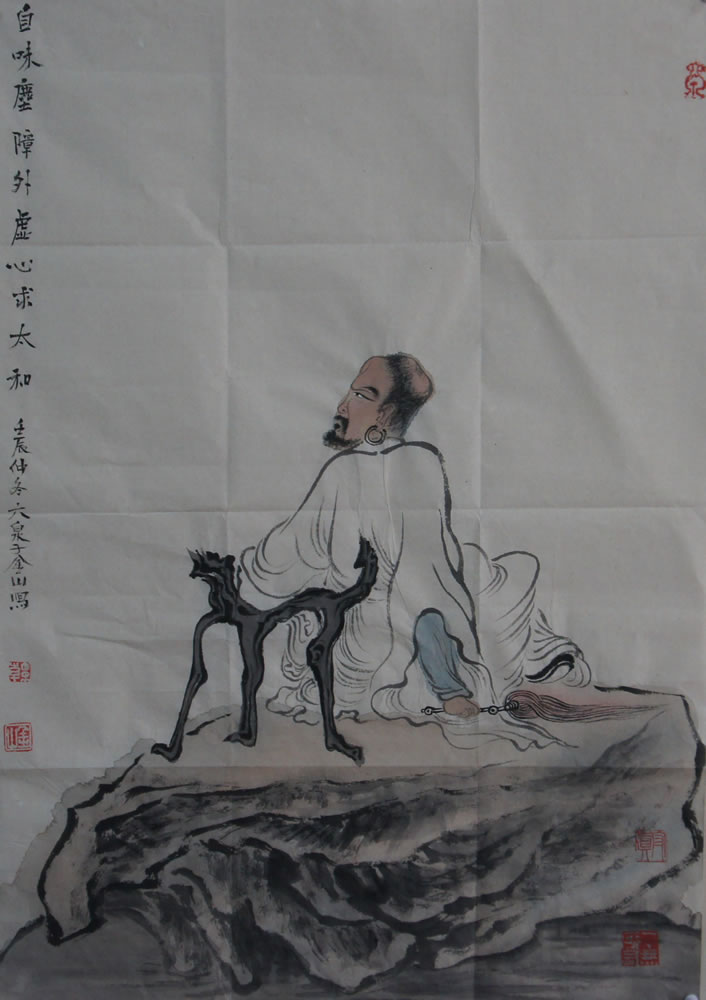 自味塵障外虚心求太和
壬辰仲冬六泉子金山寫